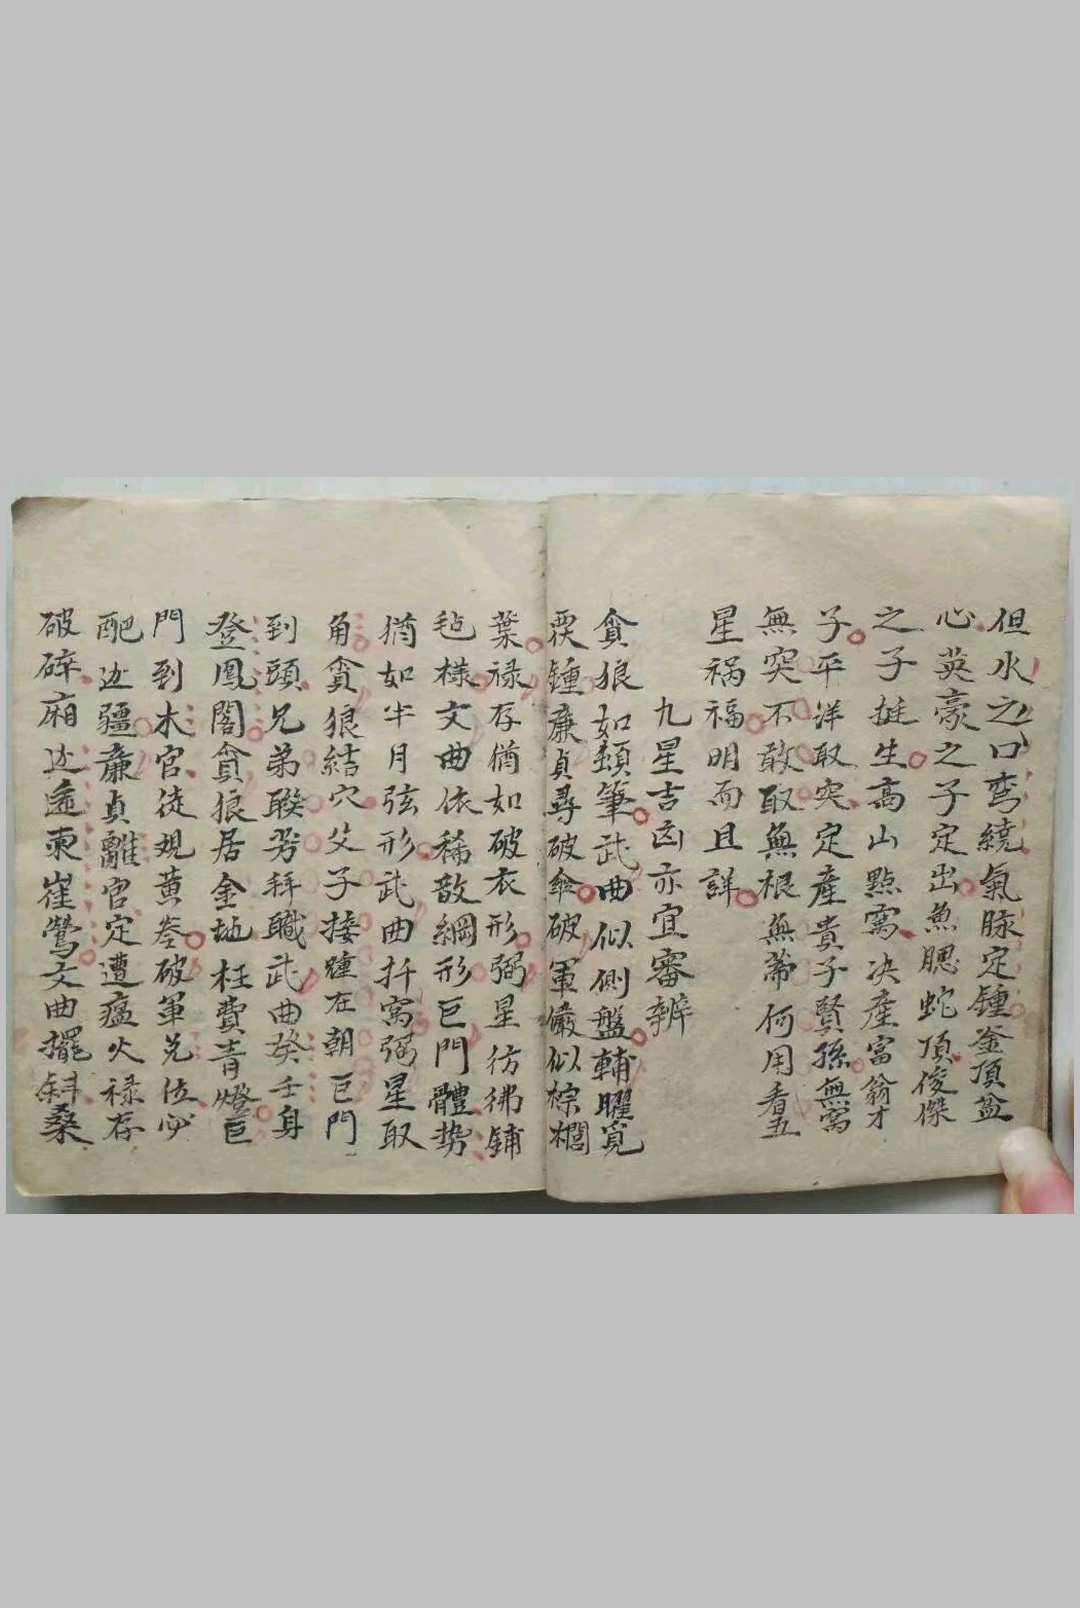 但水之口弯繞氣脉定鍾釜頂盆
心英豪之子定出魚腮蛇頂俊傑
之子挺生高山點窩决產富翁才
子平洋取突定產貴子賢孫無窩
無突不敢取無根無蒂何用看五
星祸福明而且詳
九星吉凶亦宜審辨
貪狼如頓筆武曲似側盤輔曜覓
覆鍾廉貞尋破傘破軍儼似棕櫚
葉禄存猶如破衣形弼星彷彿鋪
毡樣文曲依稀散綱形巨門體势
猶如半月弦形武曲扦窩弼星取
角貪狼結穴父子接踵在朝巨門
到頭兄弟聯芳拜職武曲癸壬身
登鳳閣貪狼居金地枉費青燈巨
門到木宫徒規黄卷破軍兑位必
配边疆廉貞離宫定遭瘟火禄存
破碎廂边逾東崔鶯文曲擺斜桑